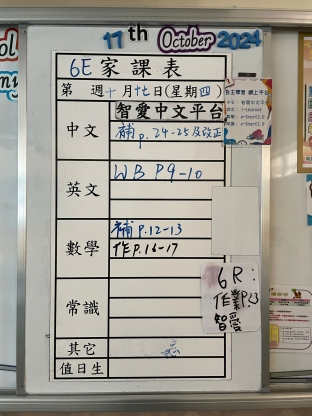 17th October 2024
6E 家課表
第 週十月十七日(星期四)
中文
智愛中文平台
補p.24-25及改正
英文
WB P9-10
數學
補P.12-13
作P.16-17
常識
其它
值日生
6R:
作業P.23
智愛